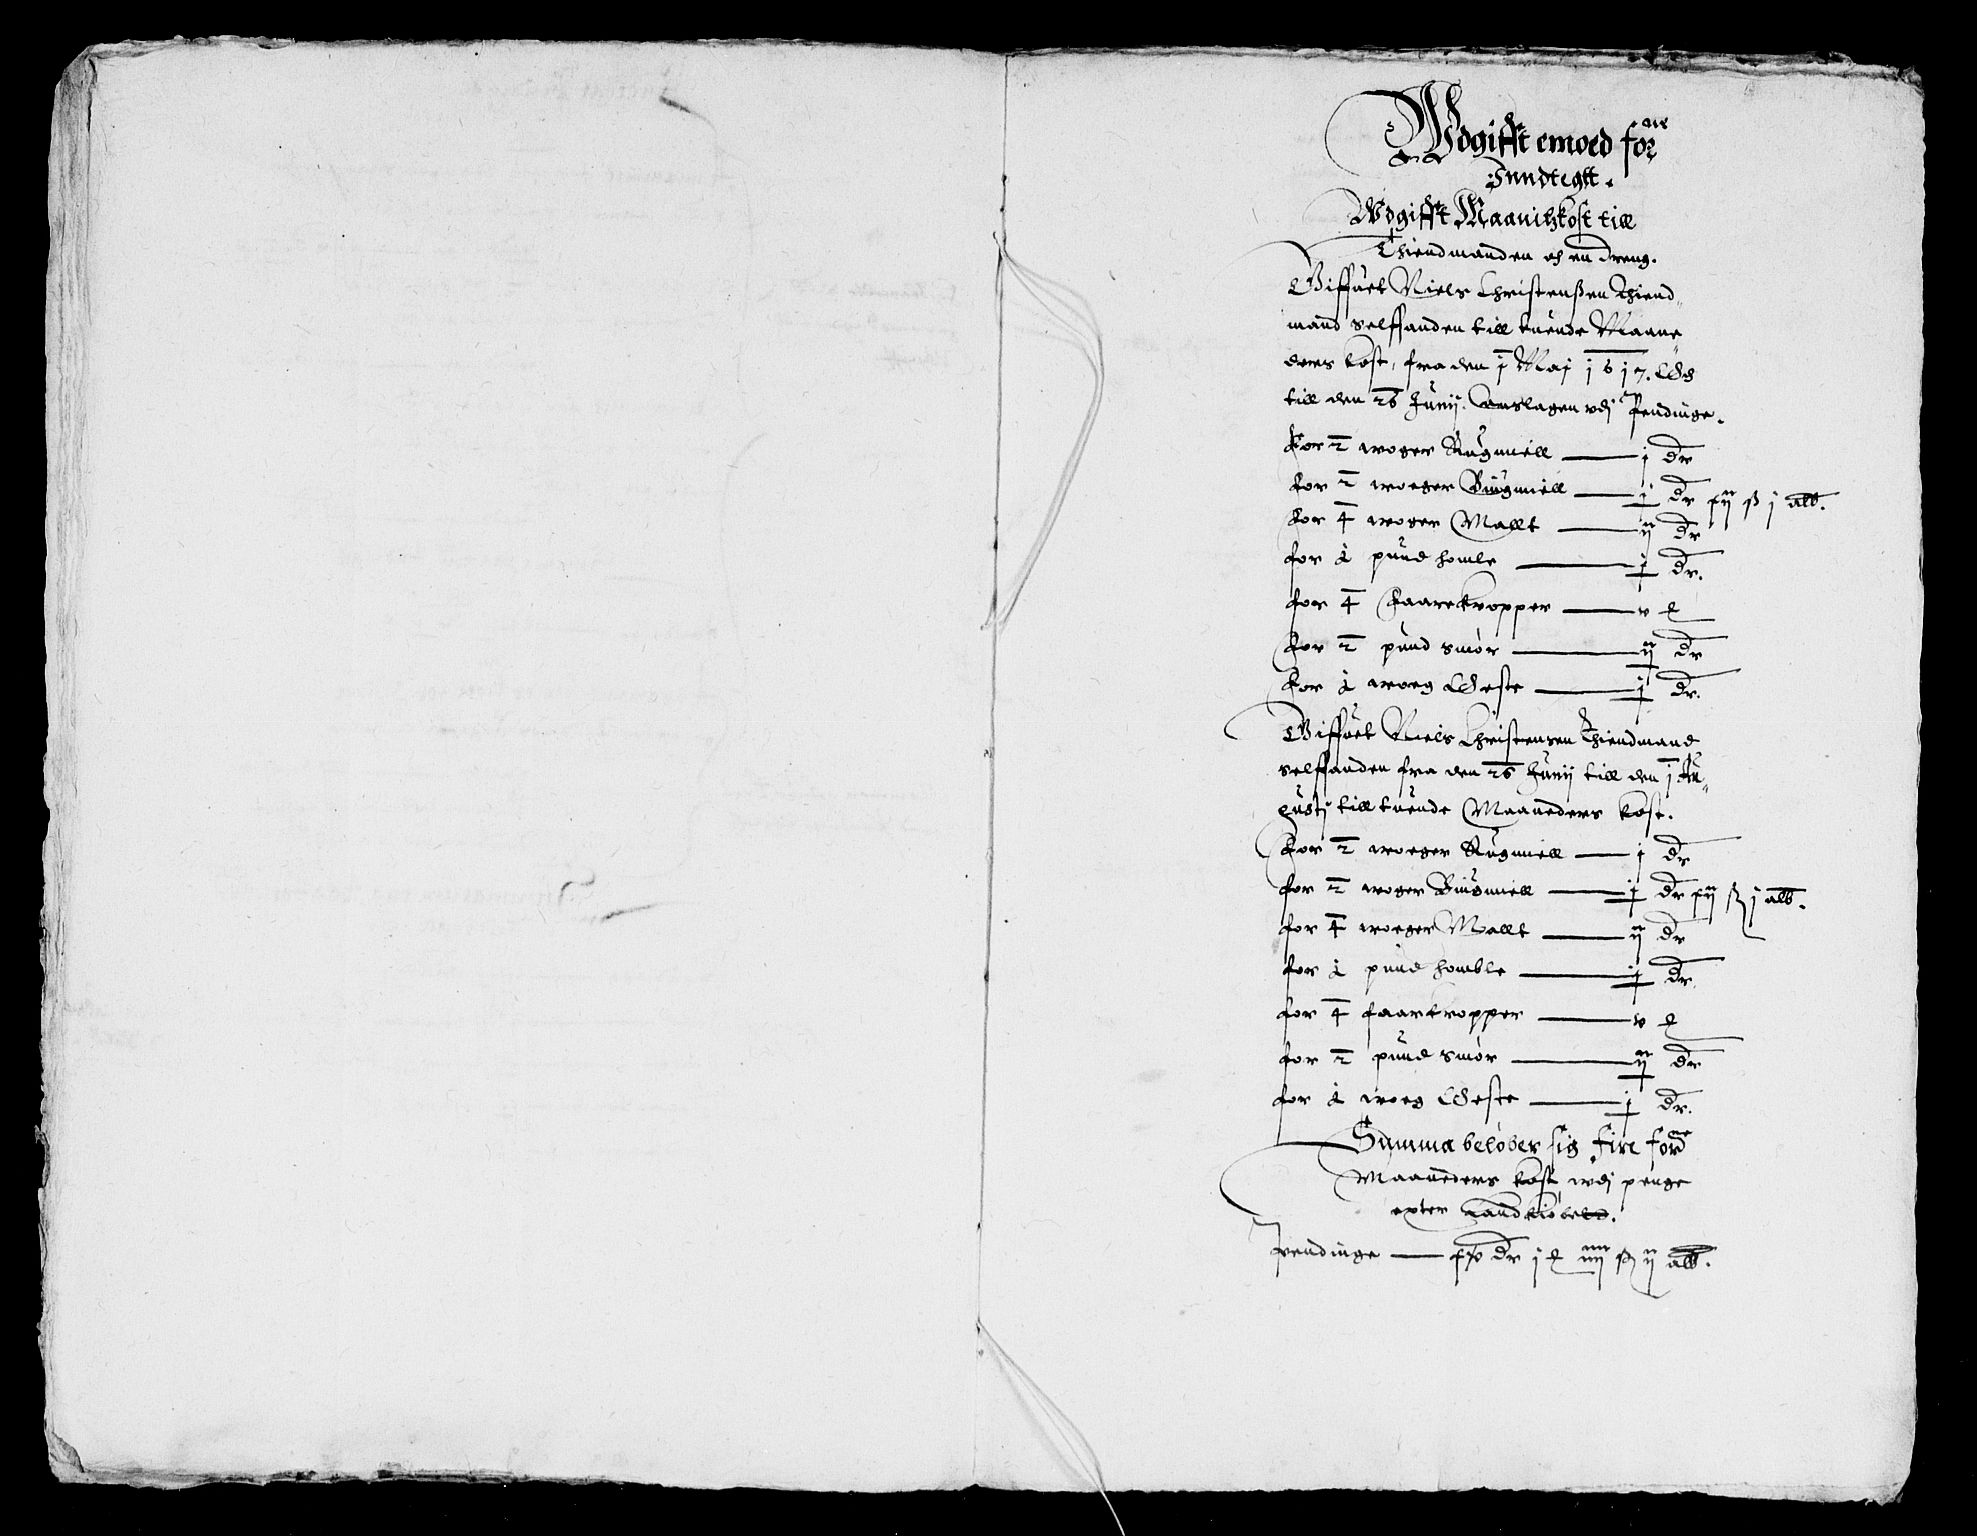 Wdgifft emoed for:ne
Inndtegtt.
Wdgifft Maanitzkost till
Thiendmanden och en dreng.
Giffuet Niels Christenßen thiend„
mand selffanden till tuende Maane
ders kost, fra den 1 Maj 1617. Och
till den 26 Junij. Anslagen vdj Pendinge.
For 2 woger Rugmiell — j dr
for 2 woeger Biugmiell — j dr xij ß j alb.
for 4 woger Mallt — ij dr
for 1 pund homle — j dr.
for 4 faarekropper — v
for 2 pund smør — ij dr
for 1 woeg Oeste — j dr.
Giffuet Niels Christensen Thiendmand
selffanden fra den 26 Junij till den 1 Au„
gustj till tuende Maaneders kost.
For 2 woeger Rugmiell — j dr
for 2 woger Biugmiell — j dr xij ß j alb.
for 4 woeger Mallt — ij dr
for 1 pund homble — j dr.
for 4 faarkropper — v
for 2 pund smør — ij dr
for 1 woeg Oeste — j dr.
Summa beløber sig fire for:ne
Maaneders kost wdj penge
epter landkiøbett.
Pendinge — dr j iiij ß ij alb.